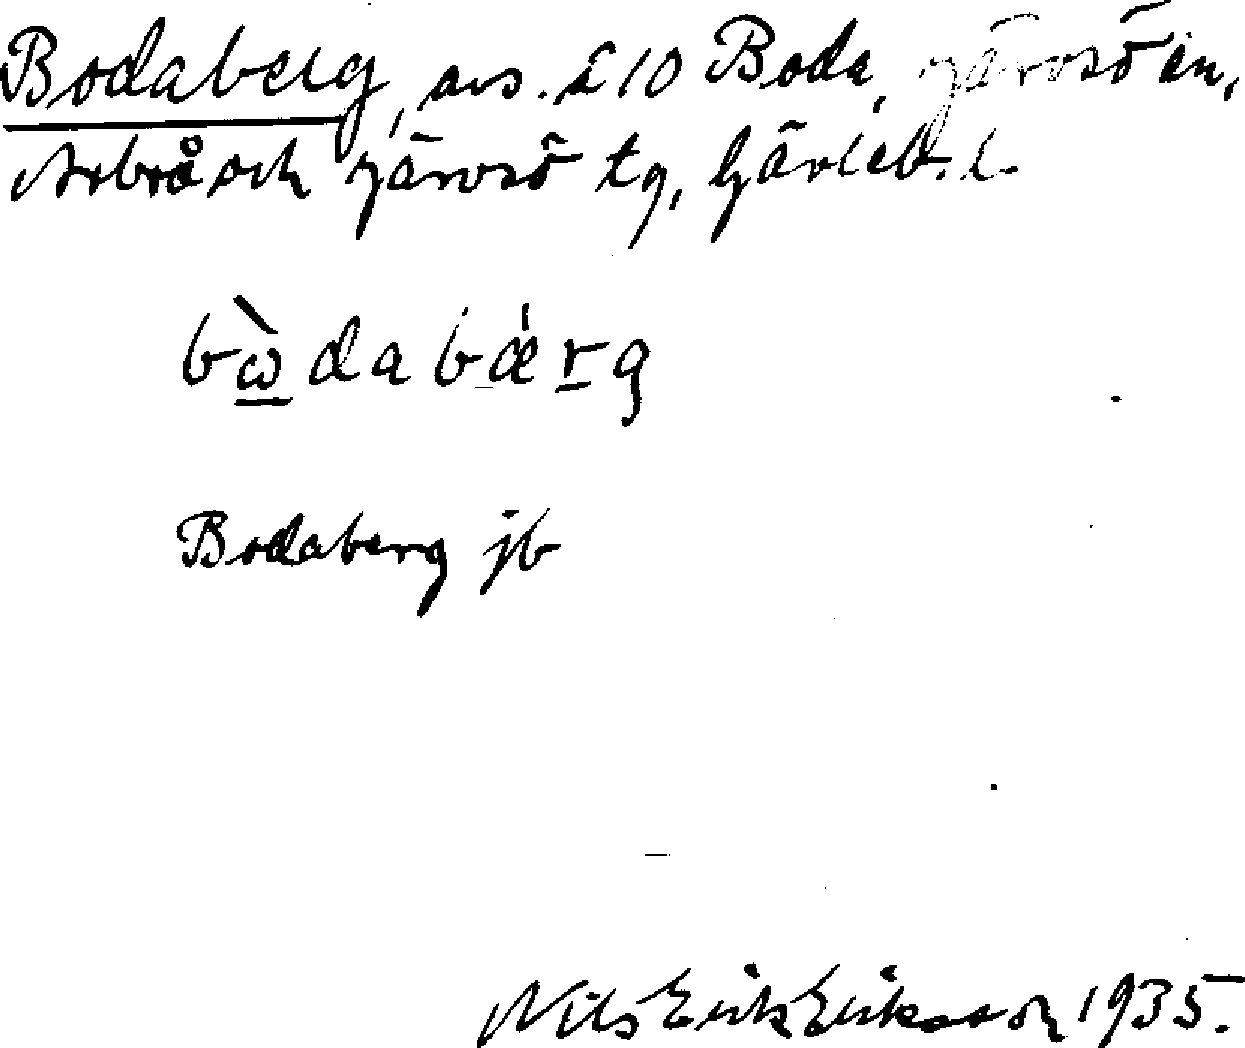 Bodaberg, avs. å 10 Boda, Järvsö sn,
Arbrå och Järvsö tg, Gävleb. l.
bὼ̲dabǽr̲g
Bodaberg jb
Nils Erik Eriksson 1935.